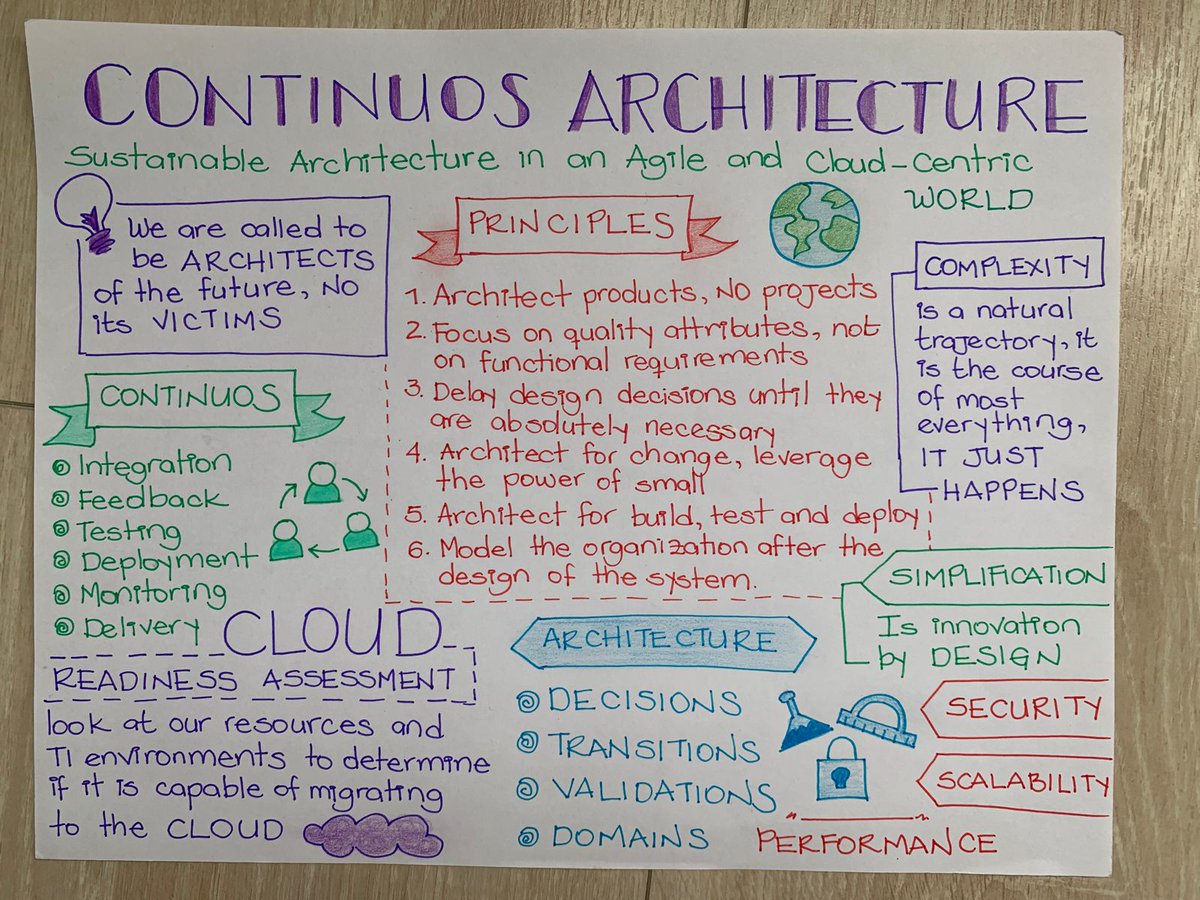 CONTINUOS ARCHITECTURE
Sustainable Architecture in an Agile and Cloud-Centric
WORLD
We are called to
be ARCHITECTS
of the future, NO
its VICTIMS
CONTINUOS
Integration
Feedback
Testing
Deployment
Monitoring
Delivery
PRINCIPLES
1. Architect products, NO projects
2. Focus on quality attributes, not
on functional requirements
3. Delay design decisions until they
are absolutely necessary
4. Architect for change, leverage
the power of small
5. Architect for build, test and deploy
6. Model the organization after the
design of the system.
COMPLEXITY
is a natural
trajectory, it
is the course
of most
everything,
IT JUST
HAPPENS
SIMPLIFICATION
Is innovation
by DESIGN
CLOUD
READINESS ASSESSMENT
look at our resources and
TI environments to determine
if it is capable of migrating
to the CLOUD
ARCHITECTURE
DECISIONS
TRANSITIONS
VALIDATIONS
DOMAINS
SECURITY
SCALABILITY
PERFORMANCE